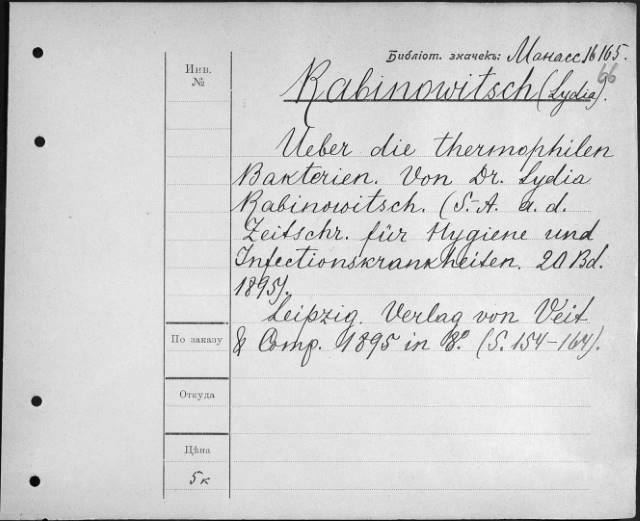 Библіот. значекъ: Манасс 16 165.
66
Инв.
№
Rabinowitsch (Lydia).
Ueber die thermophilen
Bakterien. Von Dr. Lydia
Rabinowitsch. (S.-A. a. d.
Zeitschr. für Hygiene und
Infectionskrankheiten. 20 Bd.
1895).
Leipzig. Verlag von Veit
& Comp. 1895 in 8°. (S. 154-164).
По заказу
Откуда
Цѣна
5 к